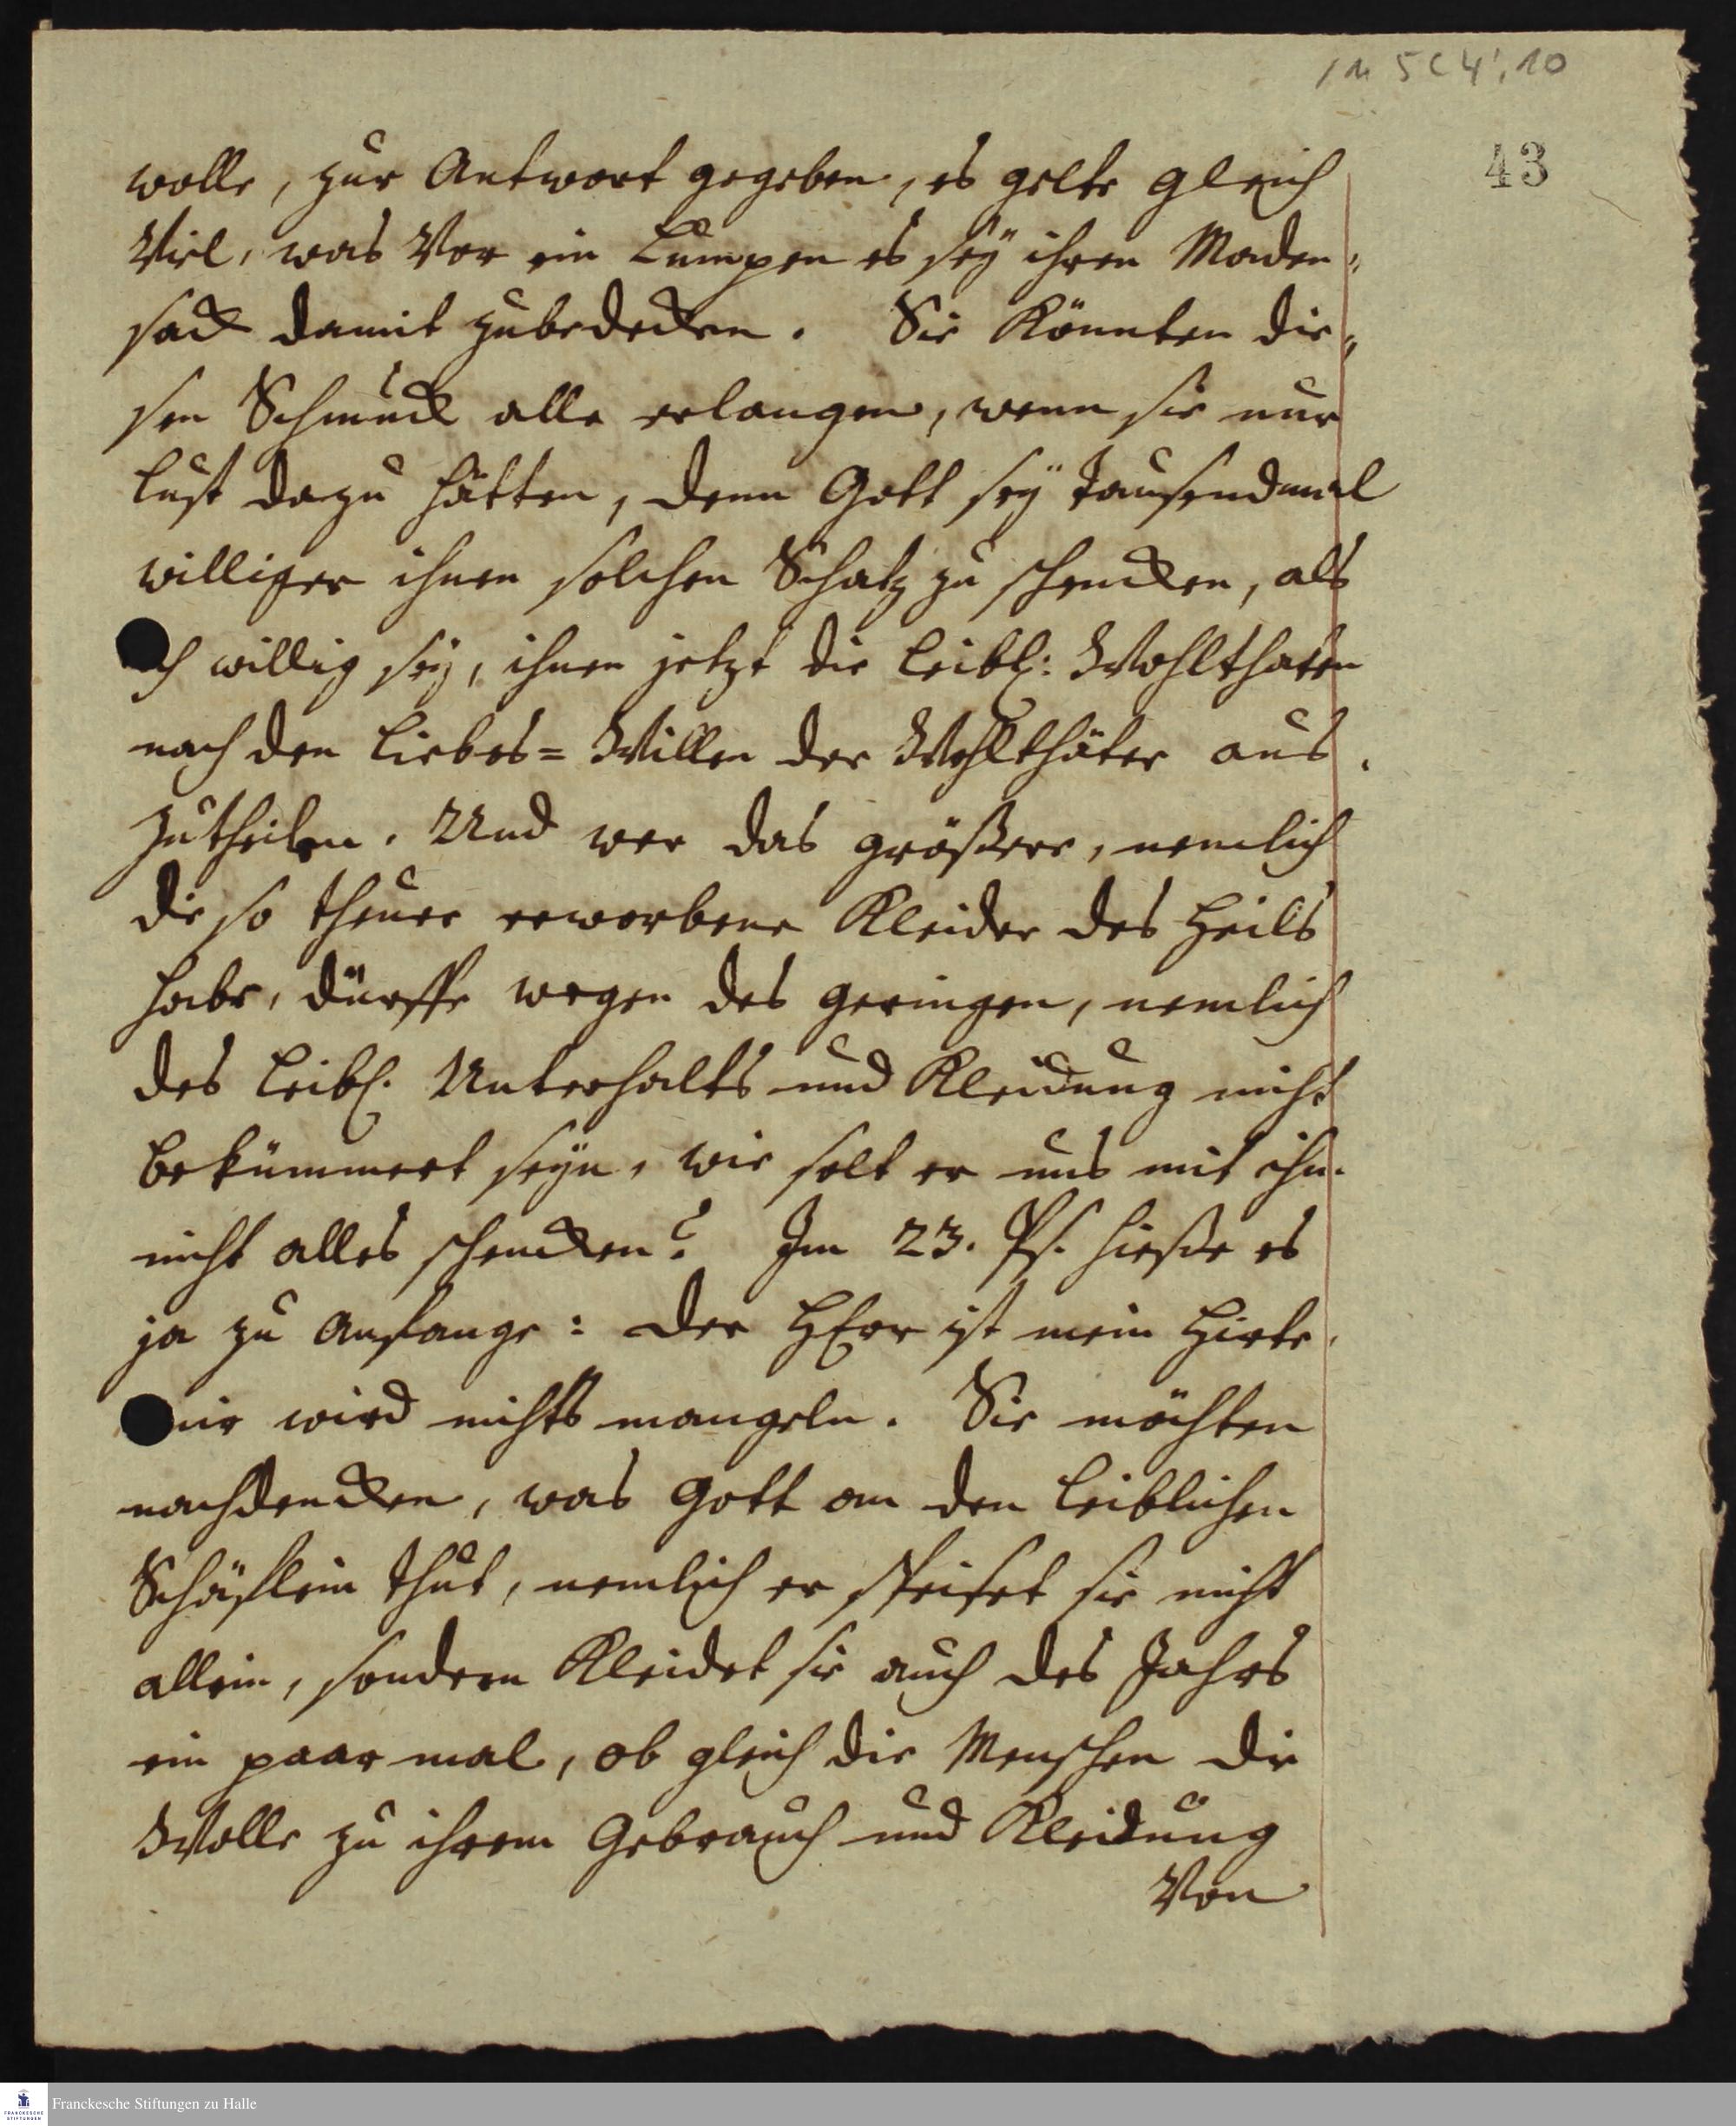 /M 5 C 4', 10
43
wolle, zur Antwort gegeben, es gelte gleich
Viel, was Vor ein Lumpen es seÿ ihren Maden„
sack damit zubedecken. Sie Könnten die„
sen Schmuck alle erlangen, wenn sie nur
Lust dazu hätten, denn Gott seÿ tausendmal
williger ihnen solchen Schatz zu schencken, als
ch willig seÿ, ihnen jetzt die leibl: Wohlthaten
nach den Liebes= Willen der Wohlthäter aus
zutheilen. Und wer das größere, nemlich
die so theuer erworbene Kleider des Heils
habe, dürffe wegen des geringen, nemlich
des leibl. Unterhalts und Kleidung nicht
bekümmert seÿn, wie solt er uns mit ihm
nicht alles schencken? Im 23. Ps. hieße es
ja zu Anfange: der HErr ist mein Hirte,
mir wird nichts mangeln. Sie möchten
nachdencken, was Gott an den leiblichen
Schäflein thut, nemlich er speiset sie nicht
allein, sondern Kleidet sie auch des Jahrs
ein paar mal, ob gleich die Menschen die
Wolle zu ihrem Gebrauch und Kleidung
Von
FRANCKESCHE STIFTUNGEN
Franckesche Stiftungen zu Halle